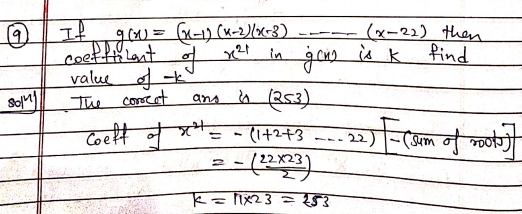 (9) If g(x) = (x-1)(x-2)(x-3) ------ (x-22) then
coefficient of x²¹ in g(x) is k find
value of -k
Solⁿ) The correct ans is (253)
Coeff of x²¹ = -(1+2+3 ---- 22) [-(sum of roots)]
= -(22×23/2)
k = 11×23 = 253